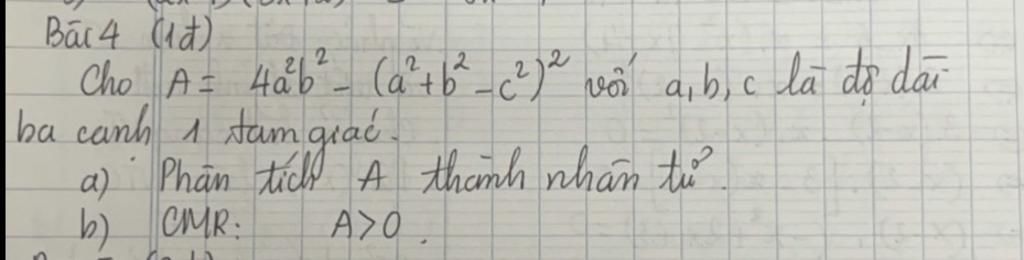 Bài 4 (1đ)
Cho A = 4a²b² - (a² + b² - c²)² với a, b, c là độ dài
ba cạnh 1 tam giác.
a) Phân tích A thành nhân tử.
b) CMR: A > 0.